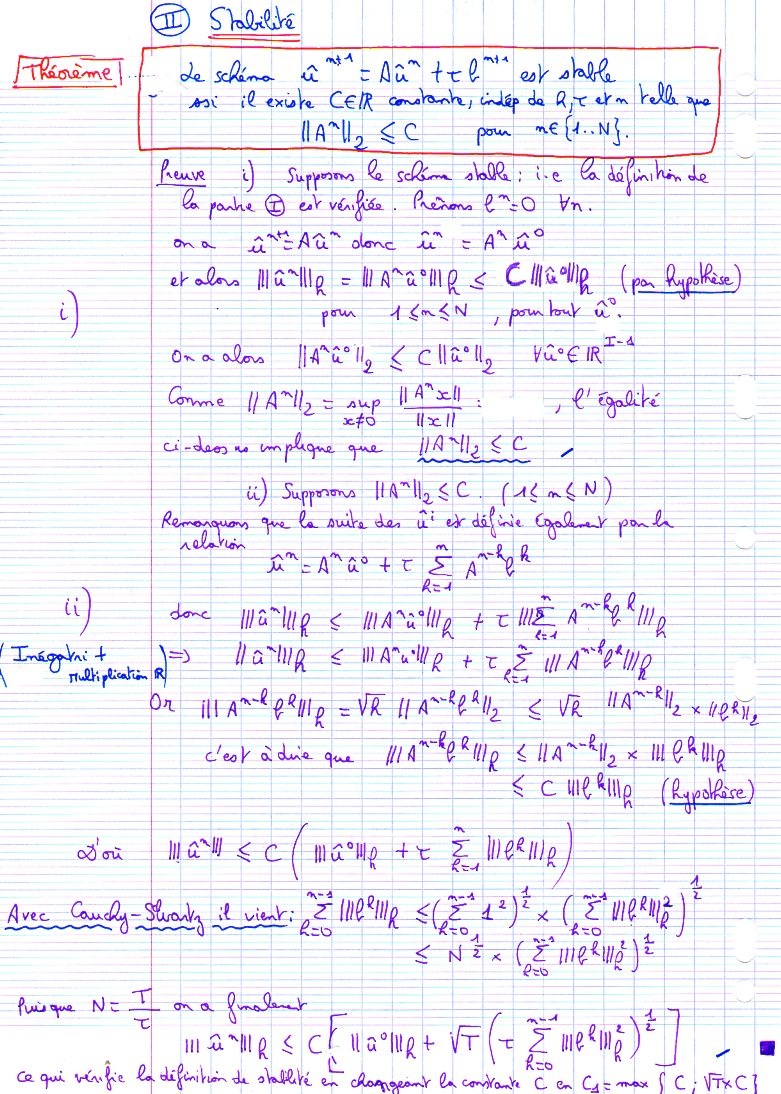 II Stabilité
Théorème
Le schéma û^{n+1} = Aû^n + τ ℓ^{n+1} est stable
ssi il existe C∈ℝ constante, indép de h, τ et n telle que
||A^n||_2 ≤ C pour n∈{1..N}.
Preuve i) Supposons le schéma stable : i.e la définition de
la partie I est vérifiée. Prenons ℓ^n=0 ∀n.
on a û^{n+1}=Aû^n donc û^n = A^n û^0
et alors |||û^n|||_h = |||A^n û^0|||_h ≤ C |||û^0|||_h (par hypothèse)
i)
pour 1≤n≤N, pour tout û^0.
On a alors ||A^n û^0||_2 ≤ C||û^0||_2 ∀û^0∈ℝ^{I-1}
Comme ||A^n||_2 = sup_{x≠0} ||A^n x|| / ||x|| : , l'égalité
ci-dessus implique que ||A^n||_2 ≤ C
ii) Supposons ||A^n||_2 ≤ C. (1≤n≤N)
Remarquons que la suite des û^i est définie également par la
relation
û^n = A^n û^0 + τ Σ_{k=1}^{n} A^{n-k} ℓ^k
ii)
donc |||û^n|||_h ≤ |||A^n û^0|||_h + τ |||Σ_{k=1}^{n} A^{n-k} ℓ^k|||_h
(Inég tri + multiplication ℝ) ⇒ ||û^n|||_h ≤ |||A^n u^0|||_h + τ Σ_{k=1}^{n} |||A^{n-k} ℓ^k|||_h
Or |||A^{n-k} ℓ^k|||_h = √h ||A^{n-k} ℓ^k||_2 ≤ √h ||A^{n-k}||_2 × ||ℓ^k||_2
c'est à dire que |||A^{n-k} ℓ^k|||_h ≤ ||A^{n-k}||_2 × |||ℓ^k|||_h
≤ C |||ℓ^k|||_h (hypothèse)
D'où |||û^n||| ≤ C ( |||û^0|||_h + τ Σ_{k=1}^{n} |||ℓ^k|||_h )
Avec Cauchy-Shwartz il vient : Σ_{k=0}^{n-1} |||ℓ^k|||_h ≤ (Σ_{k=0}^{n-1} 1^2)^{1/2} × (Σ_{k=0}^{n-1} |||ℓ^k|||_h^2)^{1/2}
≤ N^{1/2} × (Σ_{k=0}^{n-1} |||ℓ^k|||_h^2)^{1/2}
Puisque N = T/τ on a finalement
|||û^n|||_h ≤ C [ ||û^0|||_h + √T (τ Σ_{k=0}^{n-1} |||ℓ^k|||_h^2)^{1/2} ]
ce qui vérifie la définition de stabilité en changeant la constante C en C_1 = max { C ; √T×C }